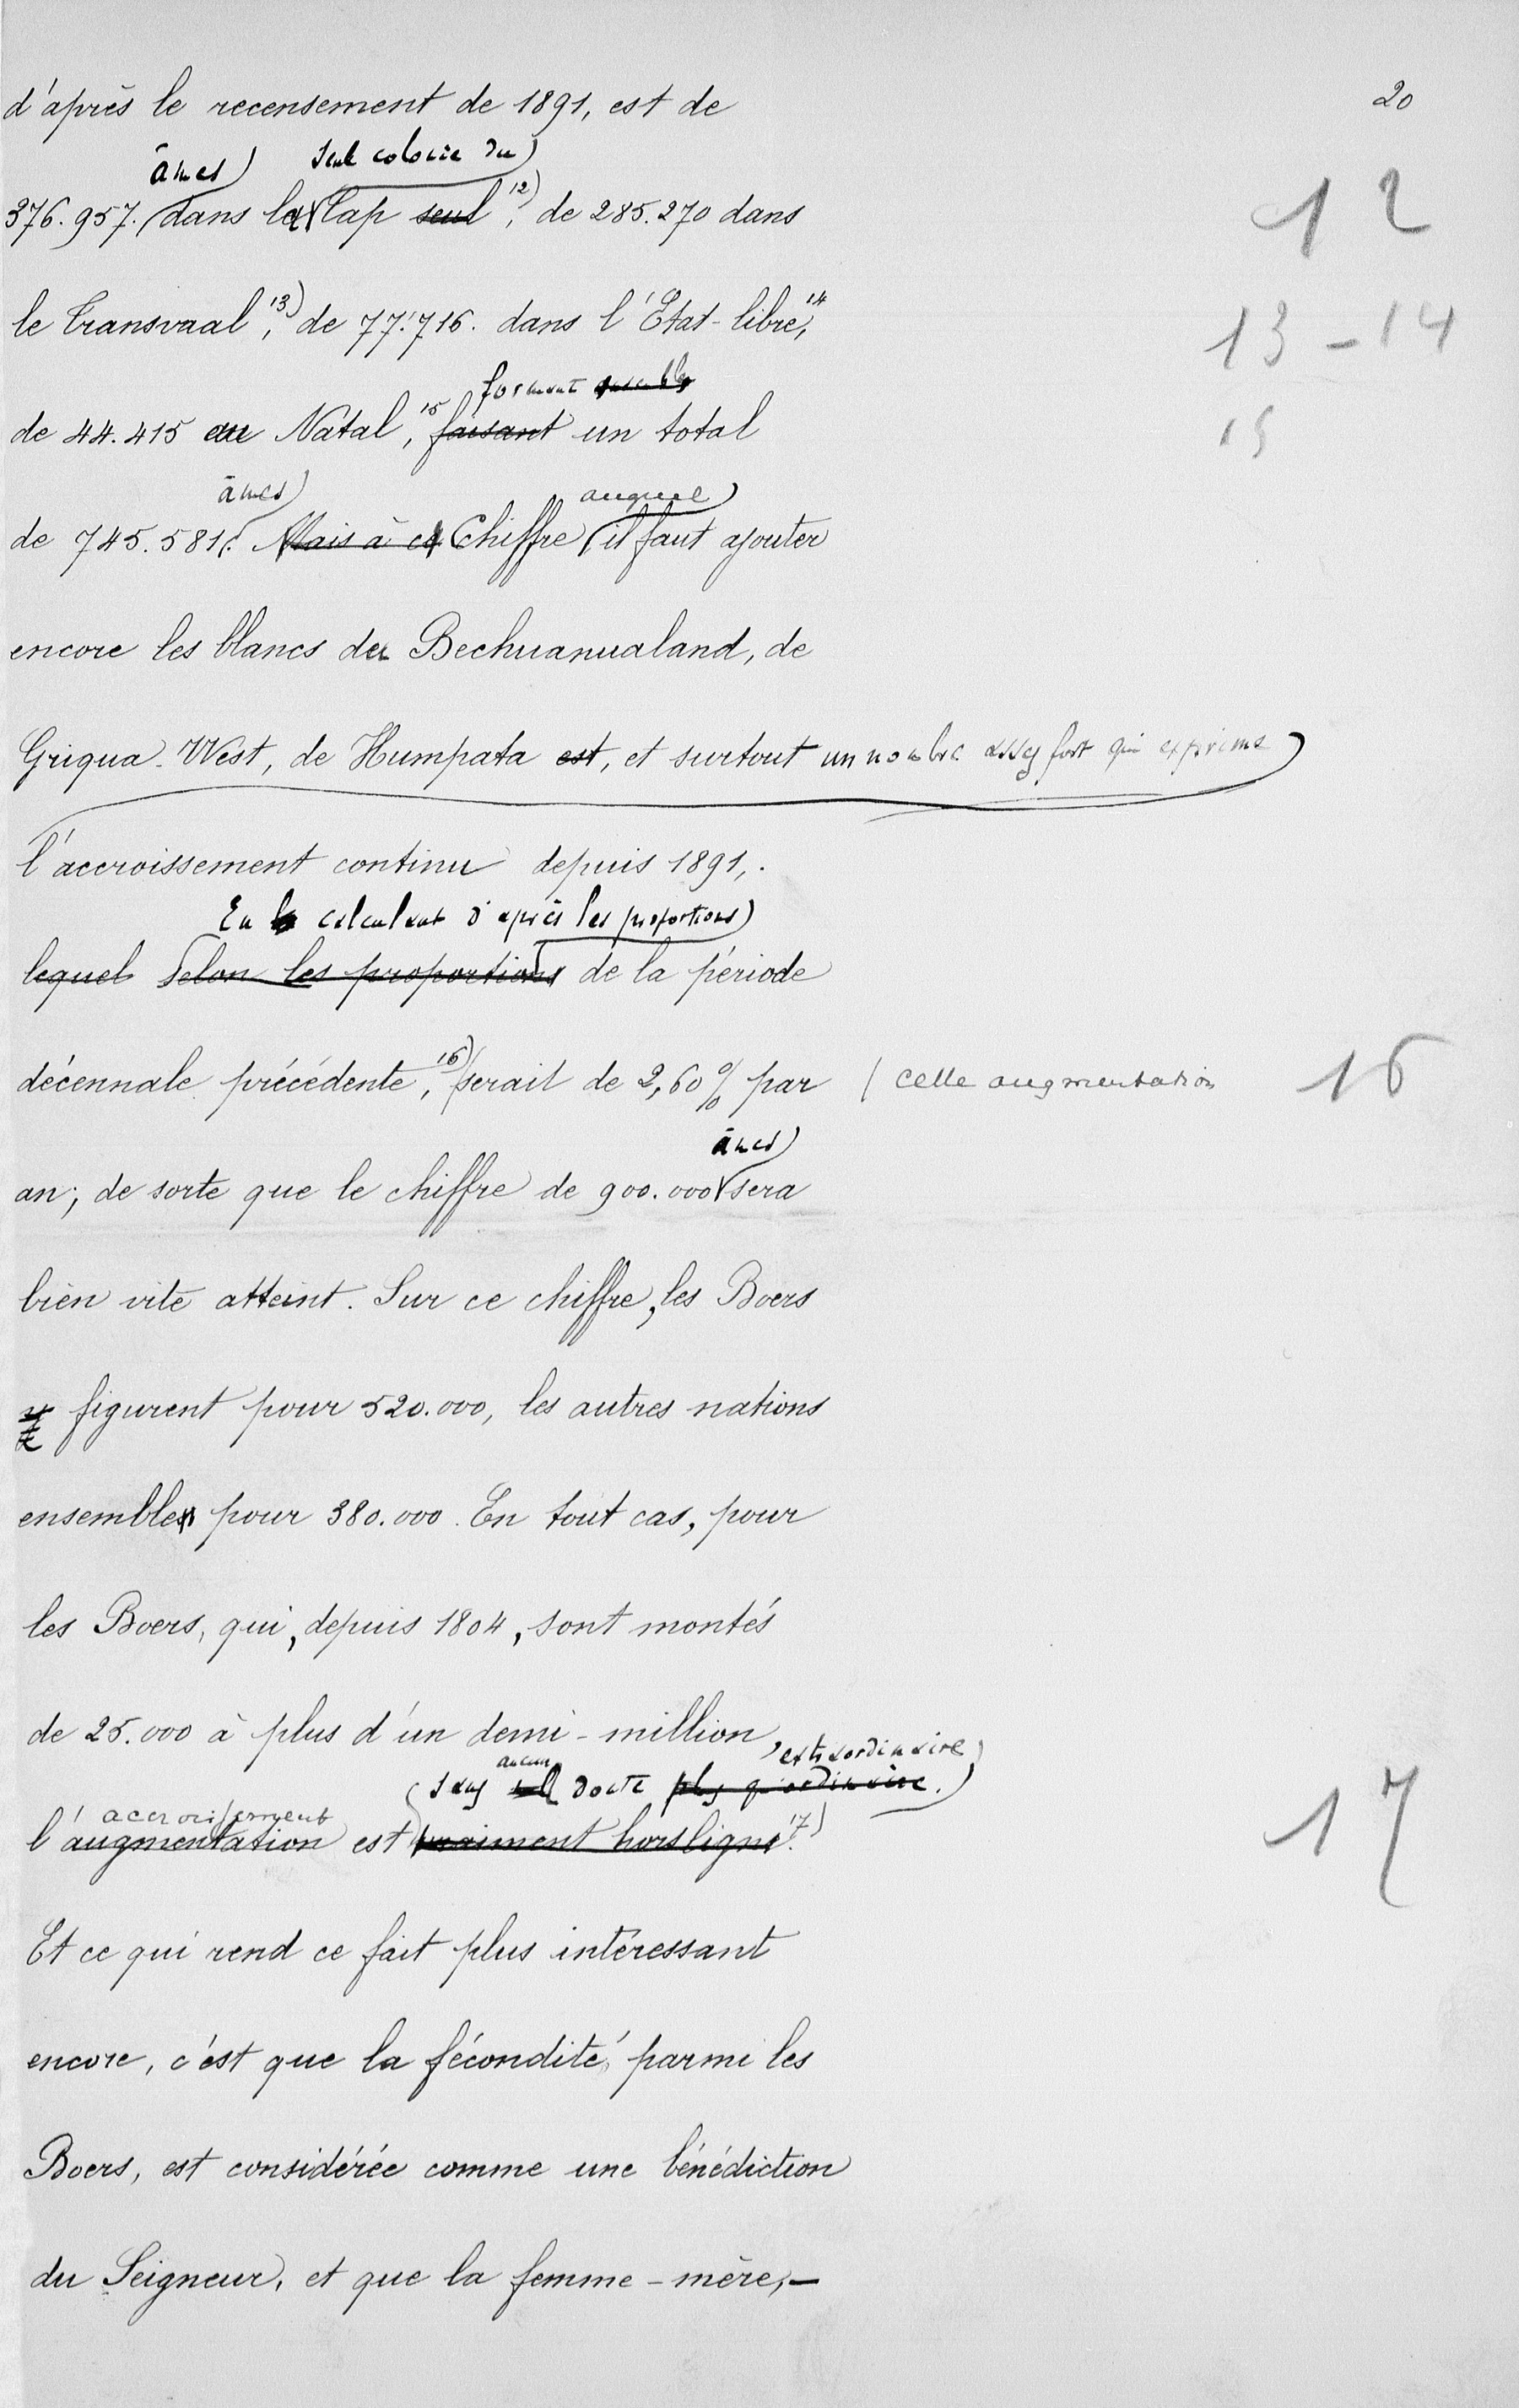 20
d'après le recensement de 1891, est de
âmes) seule colonie du)
376.957. (dans la Cap seul 12), de 285.270 dans
12
le Transvaal, 13) de 77.716. dans l'État-libre, 14
13-14
formant ensemble
de 44.415 au Natal, 15 faisant un total
15
âmes) auquel)
de 745.581. Mais à ce Chiffre (il faut ajouter
encore les blancs du Bechuanualand, de
Griqua-West, de Humpata est, et surtout un nombre assez fort qui exprime)
l'accroissement continu depuis 1891,.
En le calculant d'après les proportions)
lequel Selon les proportions de la période
décennale précédente, 16) (serait de 2,60 % par
( cette augmentation
16
âmes)
an; de sorte que le chiffre de 900.000 sera
bien vite atteint. Sur ce chiffre, les Boers
figurent pour 520.000, les autres nations
ensembles pour 380.000. En tout cas, pour
les Boers, qui, depuis 1804, sont montés
de 25.000 à plus d'un demi-million,
aucun extraordinaire)
(sans nul doute plus qu'ordinaire.)
accroissement
l'augmentation est vraiment hors ligne 17).
17
Et ce qui rend ce fait plus intéressant
encore, c'est que la fécondité, parmi les
Boers, est considérée comme une bénédiction
du Seigneur, et que la femme-mère,-